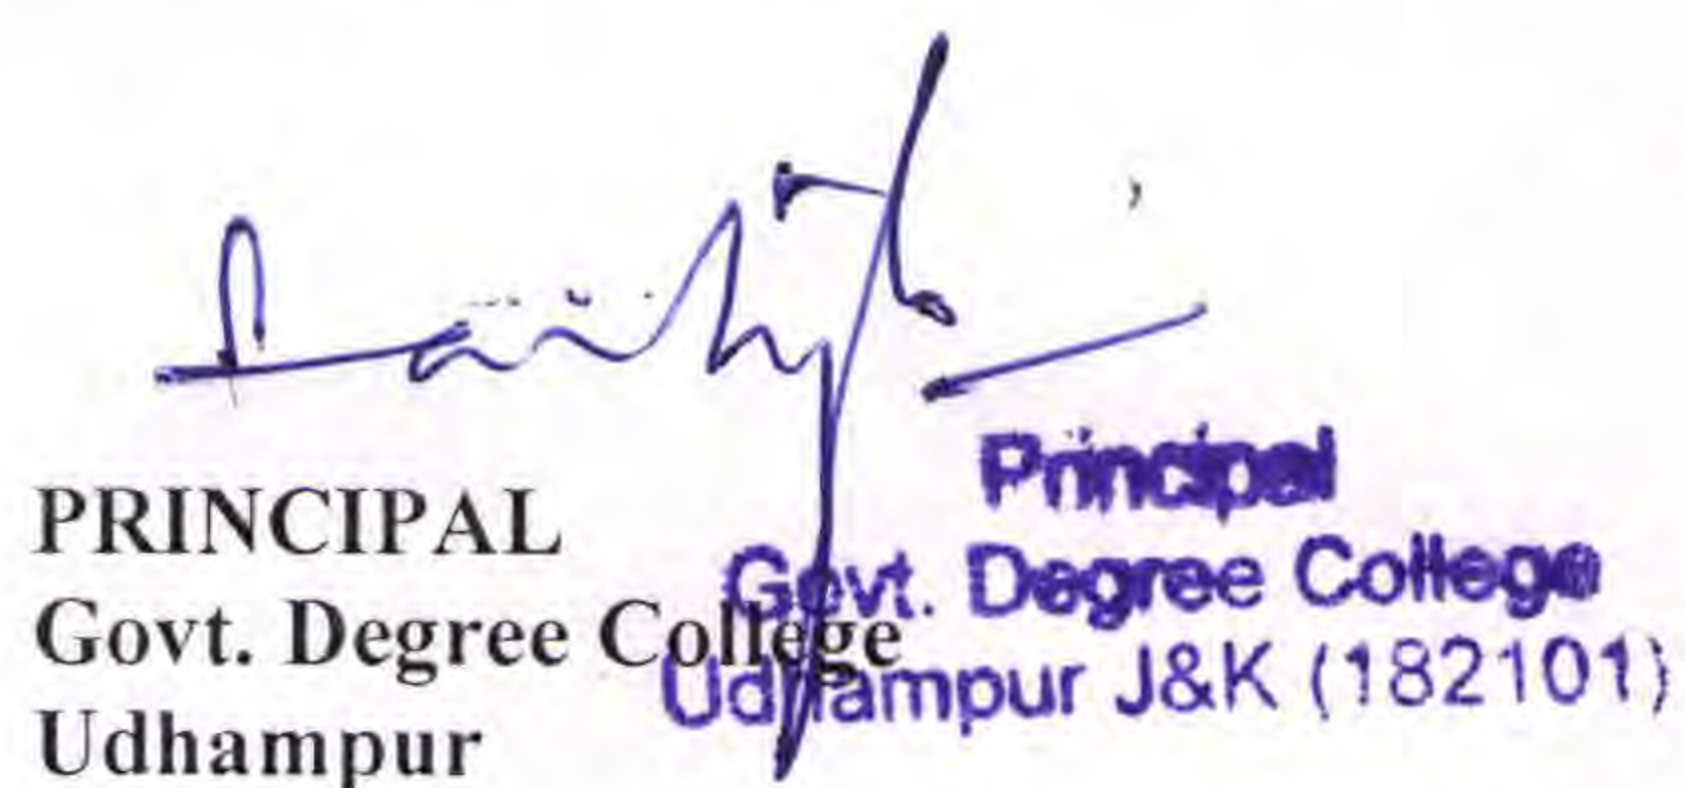 PRINCIPAL
Govt. Degree College
Udhampur
Principal
Govt. Degree College
Udhampur J&K (182101)